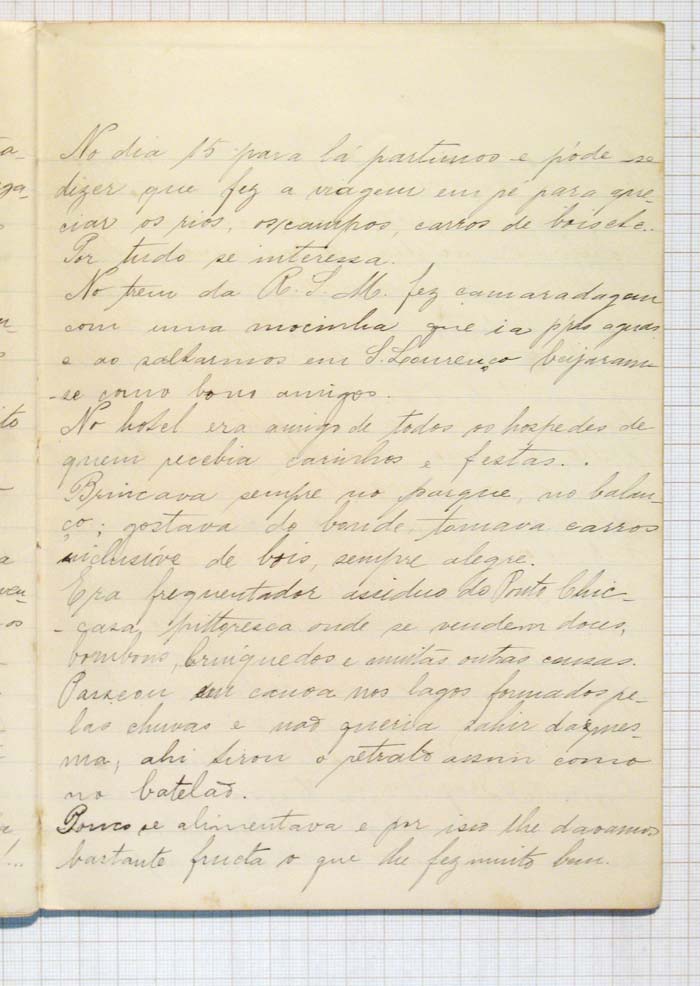 No dia 15 para lá partimos e póde-se
dizer que fez a viagem em pé para apre-
ciar os rios, os campos, carros de bois etc.
Por tudo se interessa.
No trem da R. S. M. fez camaradagem
com uma mocinha que ia p'ras aguas
e ao saltarmos em S. Lourenço beijaram
-se como bons amigos.
No hotel era amigo de todos os hospedes de
quem recebia carinhos e festas..
Brincava sempre no parque, no balan-
ço; gostava do bonde, tomava carros
inclusive de bois, sempre alegre.
Era frequentador assiduo do Ponto Chic-
-casa pittoresca onde se vendem doces,
bombons, brinquedos e muitas outras cousas.
Passeou em canoa nos lagos formados pe-
las chuvas e não queria sahir da mes-
ma, ahi tirou o retrato assim como
no batelão.
Pouco se alimentava e por isso lhe davamos
bastante fructa o que lhe fez muito bem.